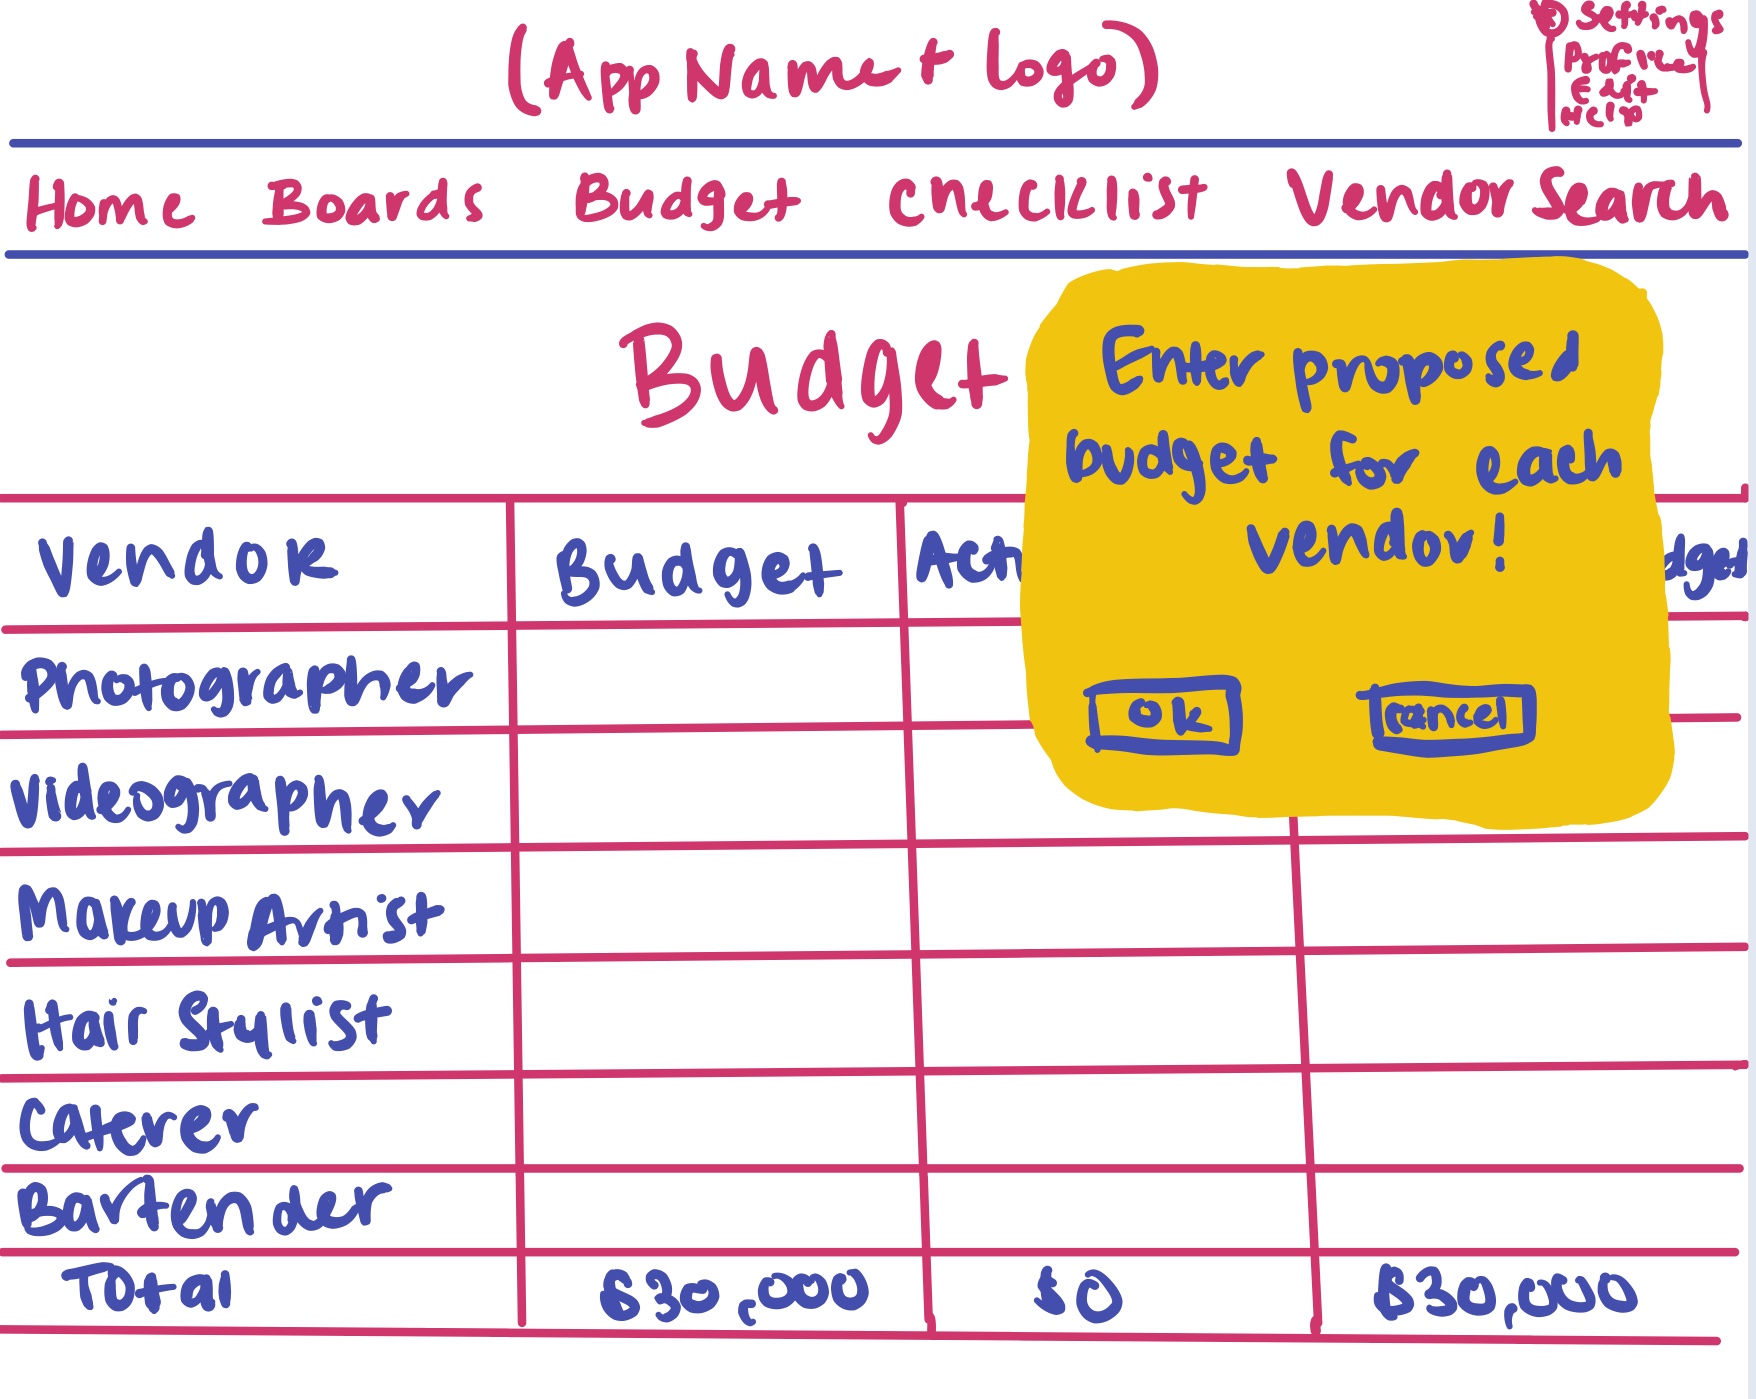 (App Name + Logo)
Settings
Profile
Edit
Help
Home Boards Budget Checklist Vendor Search
Budget
Enter proposed
budget for each
vendor!
Ok cancel
Vendor Budget Act dget
Photographer
Videographer
Makeup Artist
Hair Stylist
Caterer
Bartender
Total $30,000 $0 $30,000